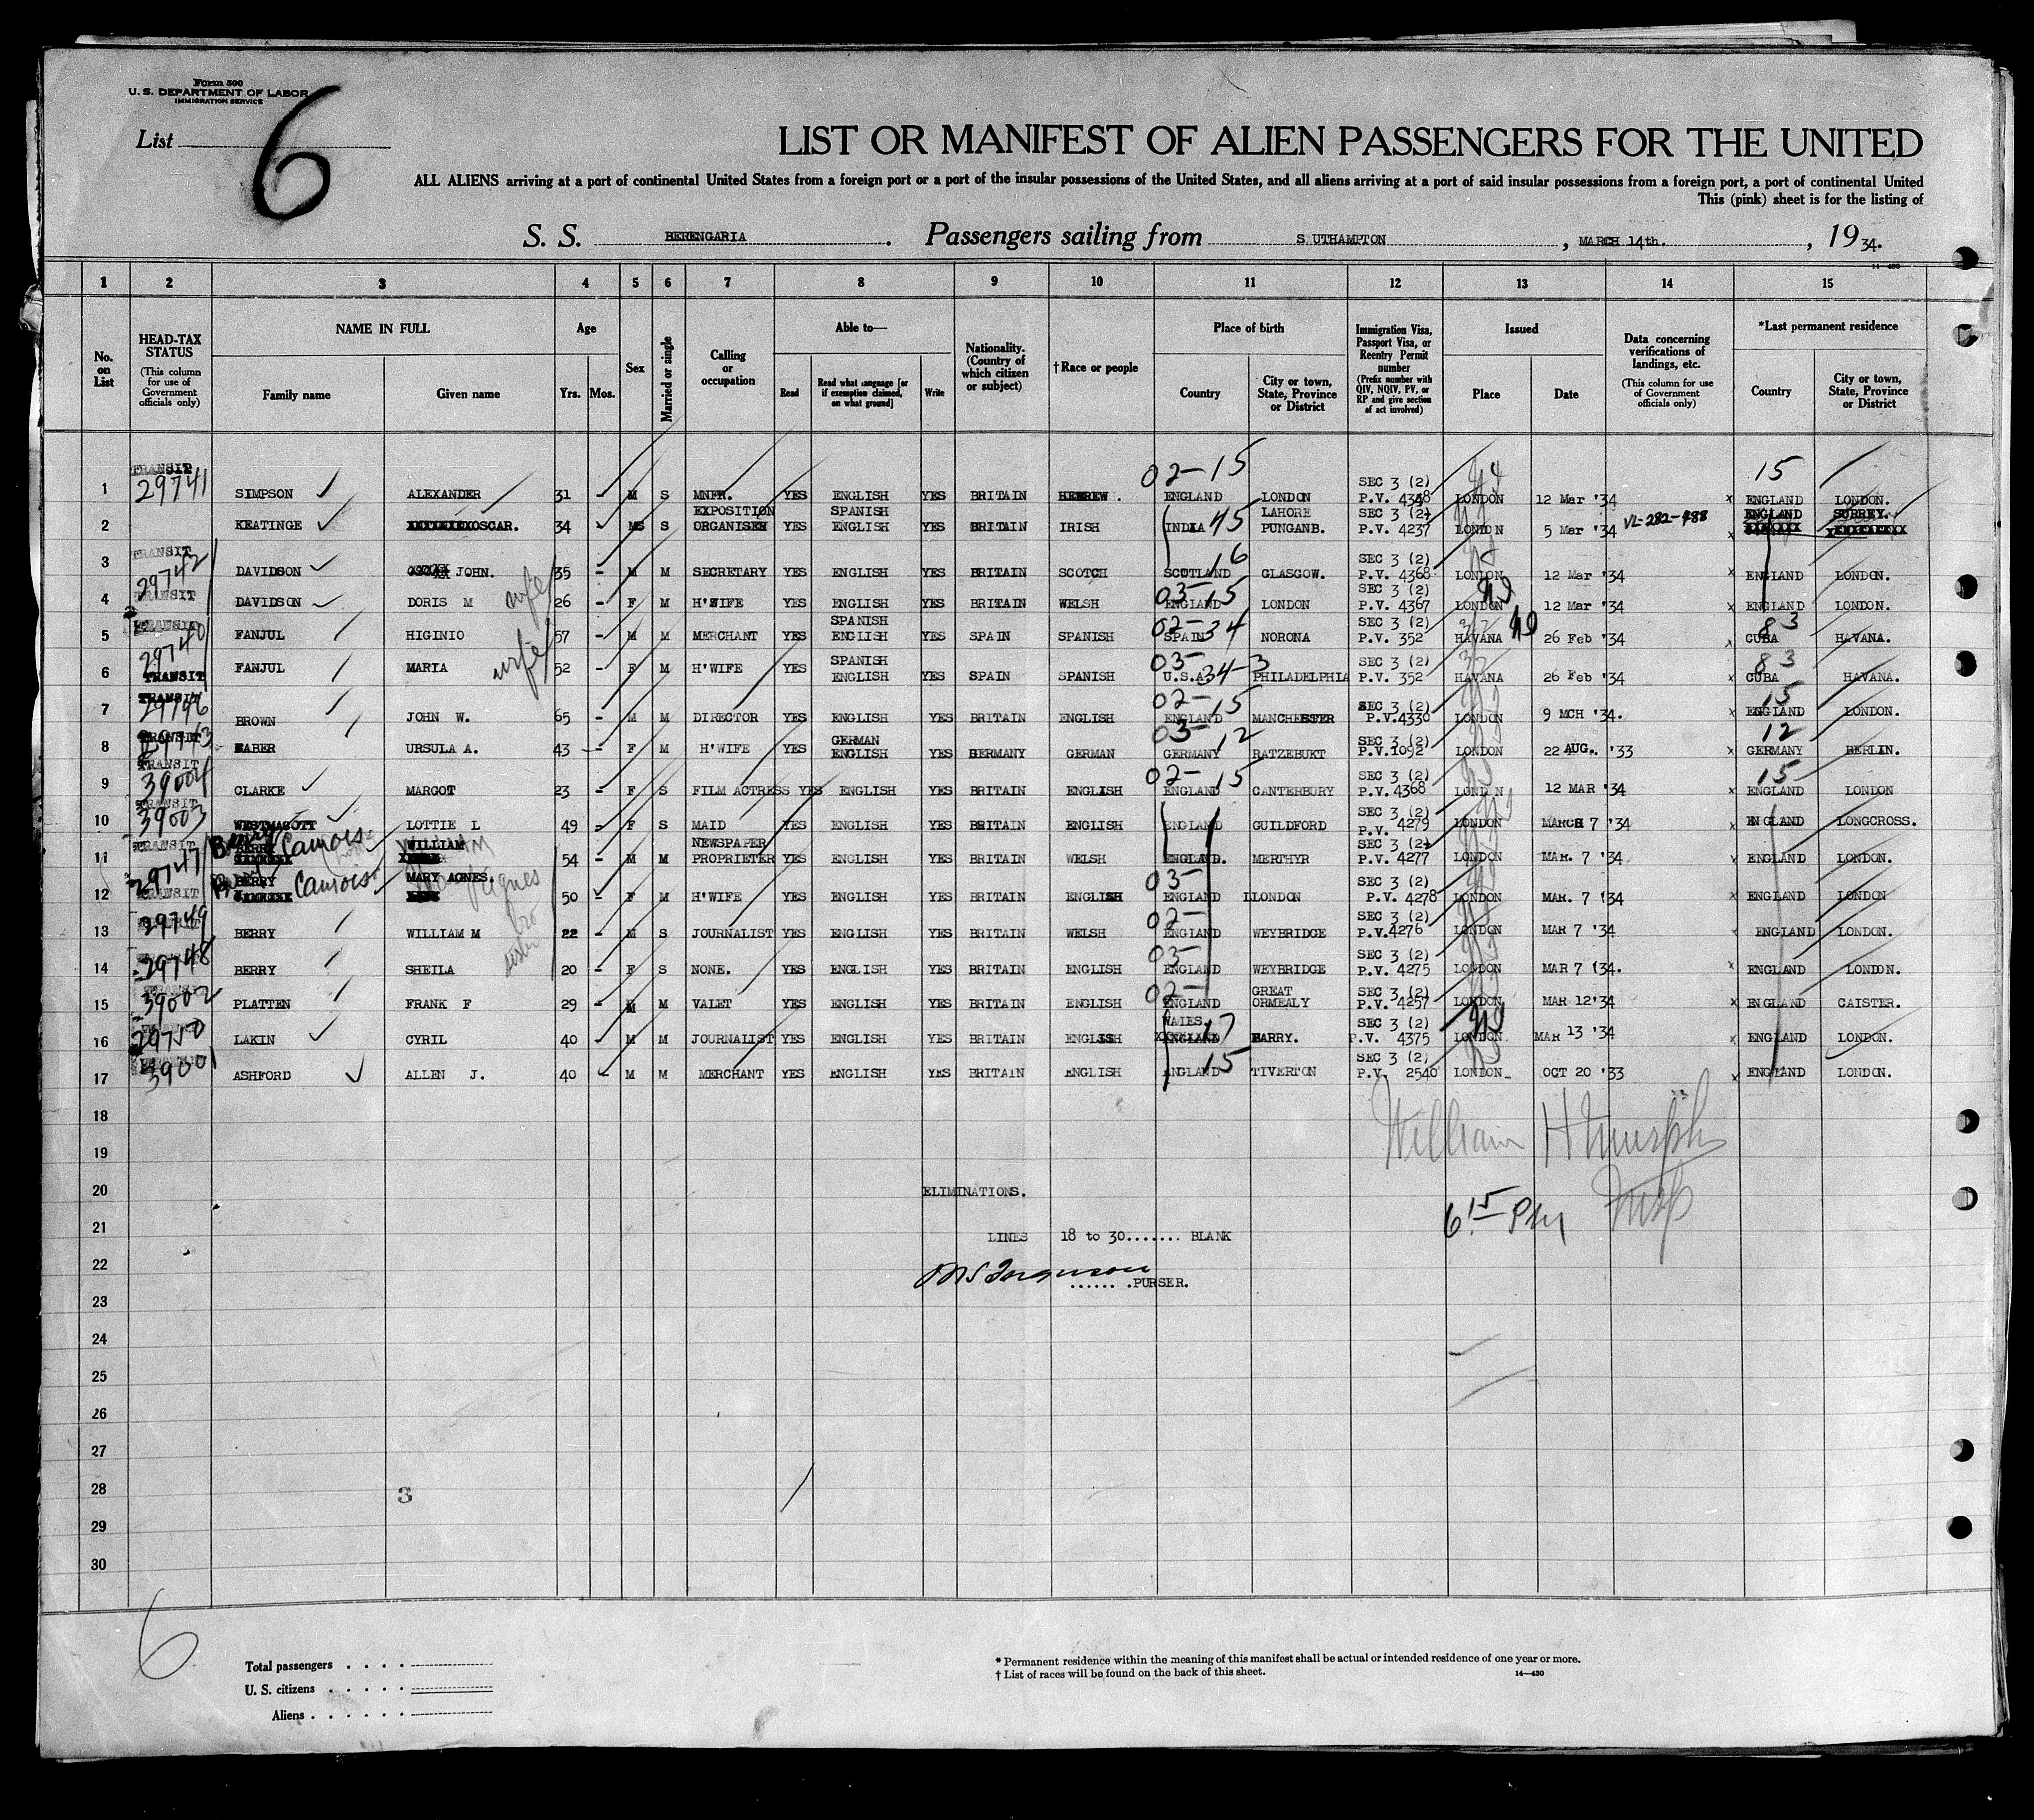 Form 500
U. S. DEPARTMENT OF LABOR
IMMIGRATION SERVICE
List 6
LIST OR MANIFEST OF ALIEN PASSENGERS FOR THE UNITED
ALL ALIENS arriving at a port of continental United States from a foreign port or a port of the insular possessions of the United States, and all aliens arriving at a port of said insular possessions from a foreign port, a port of continental United
This (pink) sheet is for the listing of
S. S. BERENGARIA. Passengers sailing from S UTHAMPTON, MARCH 14th., 1934.
14—430
1 2 3 4 5 6 7 8 9 10 11 12 13 14 15
No. on List
HEAD-TAX STATUS (This column for use of Government officials only)
NAME IN FULL Family name Given name
Age Yrs. Mos.
Sex
Married or single
Calling or occupation
Able to— Read Read what language [or if exemption claimed, on what ground] Write
Nationality. (Country of which citizen or subject)
†Race or people
Place of birth Country City or town, State, Province or District
Immigration Visa, Passport Visa, or Reentry Permit number (Prefix number with QIV, NQIV, PV, or RP and give section of act involved)
Issued Place Date
Data concerning verifications of landings, etc. (This column for use of Government officials only)
*Last permanent residence Country City or town, State, Province or District
02-15 15
1 TRANSIT 29741 SIMPSON ALEXANDER 31 - M S MNFR. YES ENGLISH YES BRITAIN HEBREW. ENGLAND LONDON SEC 3 (2) P.V. 4358 LONDON 12 Mar '34 x ENGLAND LONDON.
2 KEATINGE OSCAR. 34 MS S EXPOSITION ORGANISER YES SPANISH ENGLISH YES BRITAIN IRISH INDIA 45 LAHORE PUNGANB. SEC 3 (2) P.V. 4237 LONDON 5 Mar '34 VL-282-488 x ENGLAND SURREY.
3 TRANSIT 29742 DAVIDSON JOHN. 35 - M M SECRETARY YES ENGLISH YES BRITAIN SCOTCH 16 SCOTLAND GLASGOW. SEC 3 (2) P.V. 4368 LONDON 12 Mar '34 x ENGLAND LONDON.
4 TRANSIT DAVIDSON DORIS M wife 26 - F M H'WIFE YES ENGLISH YES BRITAIN WELSH 03-15 ENGLAND LONDON SEC 3 (2) P.V. 4367 LONDON 12 Mar '34 x ENGLAND LONDON.
5 TRANSIT 29740 FANJUL HIGINIO 57 - M M MERCHANT YES SPANISH ENGLISH YES SPAIN SPANISH 02-34 SPAIN NORONA SEC 3 (2) P.V. 352 HAVANA 26 Feb '34 x 83 CUBA HAVANA.
6 TRANSIT FANJUL MARIA wife 52 - F M H'WIFE YES SPANISH ENGLISH YES SPAIN SPANISH 03- U.S.A 34-3 PHILADELPHIA SEC 3 (2) P.V. 352 HAVANA 26 Feb '34 x 83 CUBA HAVANA.
7 TRANSIT 29746 BROWN JOHN W. 65 - M M DIRECTOR YES ENGLISH YES BRITAIN ENGLISH 02-15 ENGLAND MANCHESTER SEC 3 (2) P.V.4330 LONDON 9 MCH '34. x 15 ENGLAND LONDON.
8 TRANSIT 29743 FABER URSULA A. 43 - F M H'WIFE YES GERMAN ENGLISH YES GERMANY GERMAN 03-12 GERMANY RATZEBUKT SEC 3 (2) P.V.1092 LONDON 22 AUG. '33 x 12 GERMANY BERLIN.
9 TRANSIT 39004 CLARKE MARGOT 23 - F S FILM ACTRESS YES ENGLISH YES BRITAIN ENGLISH 02-15 ENGLAND CANTERBURY SEC 3 (2) P.V. 4368 LOND N 12 MAR '34 x 15 ENGLAND LONDON
10 TRANSIT 39003 WESTMACOTT LOTTIE L 49 - F S MAID YES ENGLISH YES BRITAIN ENGLISH ENGLAND GUILDFORD SEC 3 (2) P.V. 4279 LONDON MARCH 7 '34 x ENGLAND LONGCROSS.
11 TRANSIT 29747 Berry Camrose BERRY WILLIAM 54 - M M NEWSPAPER PROPRIETER YES ENGLISH YES BRITAIN WELSH ENGLAND. MERTHYR SEC 3 (2) P.V. 4277 LONDON MAR. 7 '34 x ENGLAND LONDON.
12 TRANSIT Camrose BERRY MARY AGNES. Agnes 50 - F M H'WIFE YES ENGLISH YES BRITAIN ENGLISH 03- ENGLAND LLONDON SEC 3 (2) P.V. 4278 LONDON MAR. 7 '34 x ENGLAND LONDON
13 29749 BERRY WILLIAM M bro 22 - M S JOURNALIST YES ENGLISH YES BRITAIN WELSH 02- ENGLAND WEYBRIDGE SEC 3 (2) P.V.4276 LONDON MAR 7 '34 ENGLAND LONDON.
14 29748 BERRY SHEILA sister 20 - F S NONE. YES ENGLISH YES BRITAIN ENGLISH 03- ENGLAND WEYBRIDGE SEC 3 (2) P.V. 4275 LONDON MAR 7 '34. x ENGLAND LONDON.
15 TRANSIT 39002 PLATTEN FRANK F 29 - M M VALET YES ENGLISH YES BRITAIN ENGLISH 02- ENGLAND GREAT ORMEALY SEC 3 (2) P.V. 4257 LONDON MAR 12'34 x ENGLAND CAISTER.
16 29750 LAKIN CYRIL 40 - M M JOURNALIST YES ENGLISH YES BRITAIN ENGLISH WALES. 17 BARRY. SEC 3 (2) P.V. 4375 LONDON. MAR 13 '34 x ENGLAND LONDON.
17 39001 ASHFORD ALLEN J. 40 - M M MERCHANT YES ENGLISH YES BRITAIN ENGLISH 15 ENGLAND TIVERTON SEC 3 (2) P.V. 2540 LONDON OCT 20 '33 x ENGLAND LONDON.
18
William H Murphy
19
20 ELIMINATIONS. Insp
6 15 PM
21 LINES 18 to 30....... BLANK
22
...... .PURSER.
23
24
25
26
27
28 3
29
30
6
Total passengers
U. S. citizens
Aliens
* Permanent residence within the meaning of this manifest shall be actual or intended residence of one year or more.
† List of races will be found on the back of this sheet.
14—430